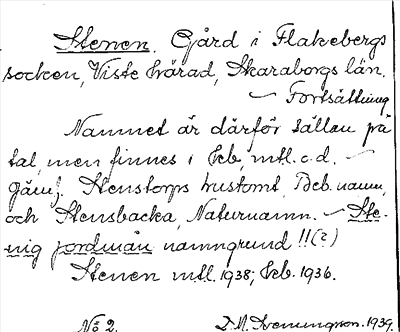 Stenen. Gård i Flakebergs
socken, Viste härad, Skaraborgs län.
— Fortsättning
Namnet är därför sällan på
tal, men finnes i Jeb, mtl. o.d. —
Jämf. Stenstorps hustomt, Beb. namn,
och Stensbacka, Naturnamn. — Ste-
nig jordmån namngrund !!(?)
Stenen mtl. 1938; Jeb. 1936.
No 2. D.A. Hemingson. 1939.